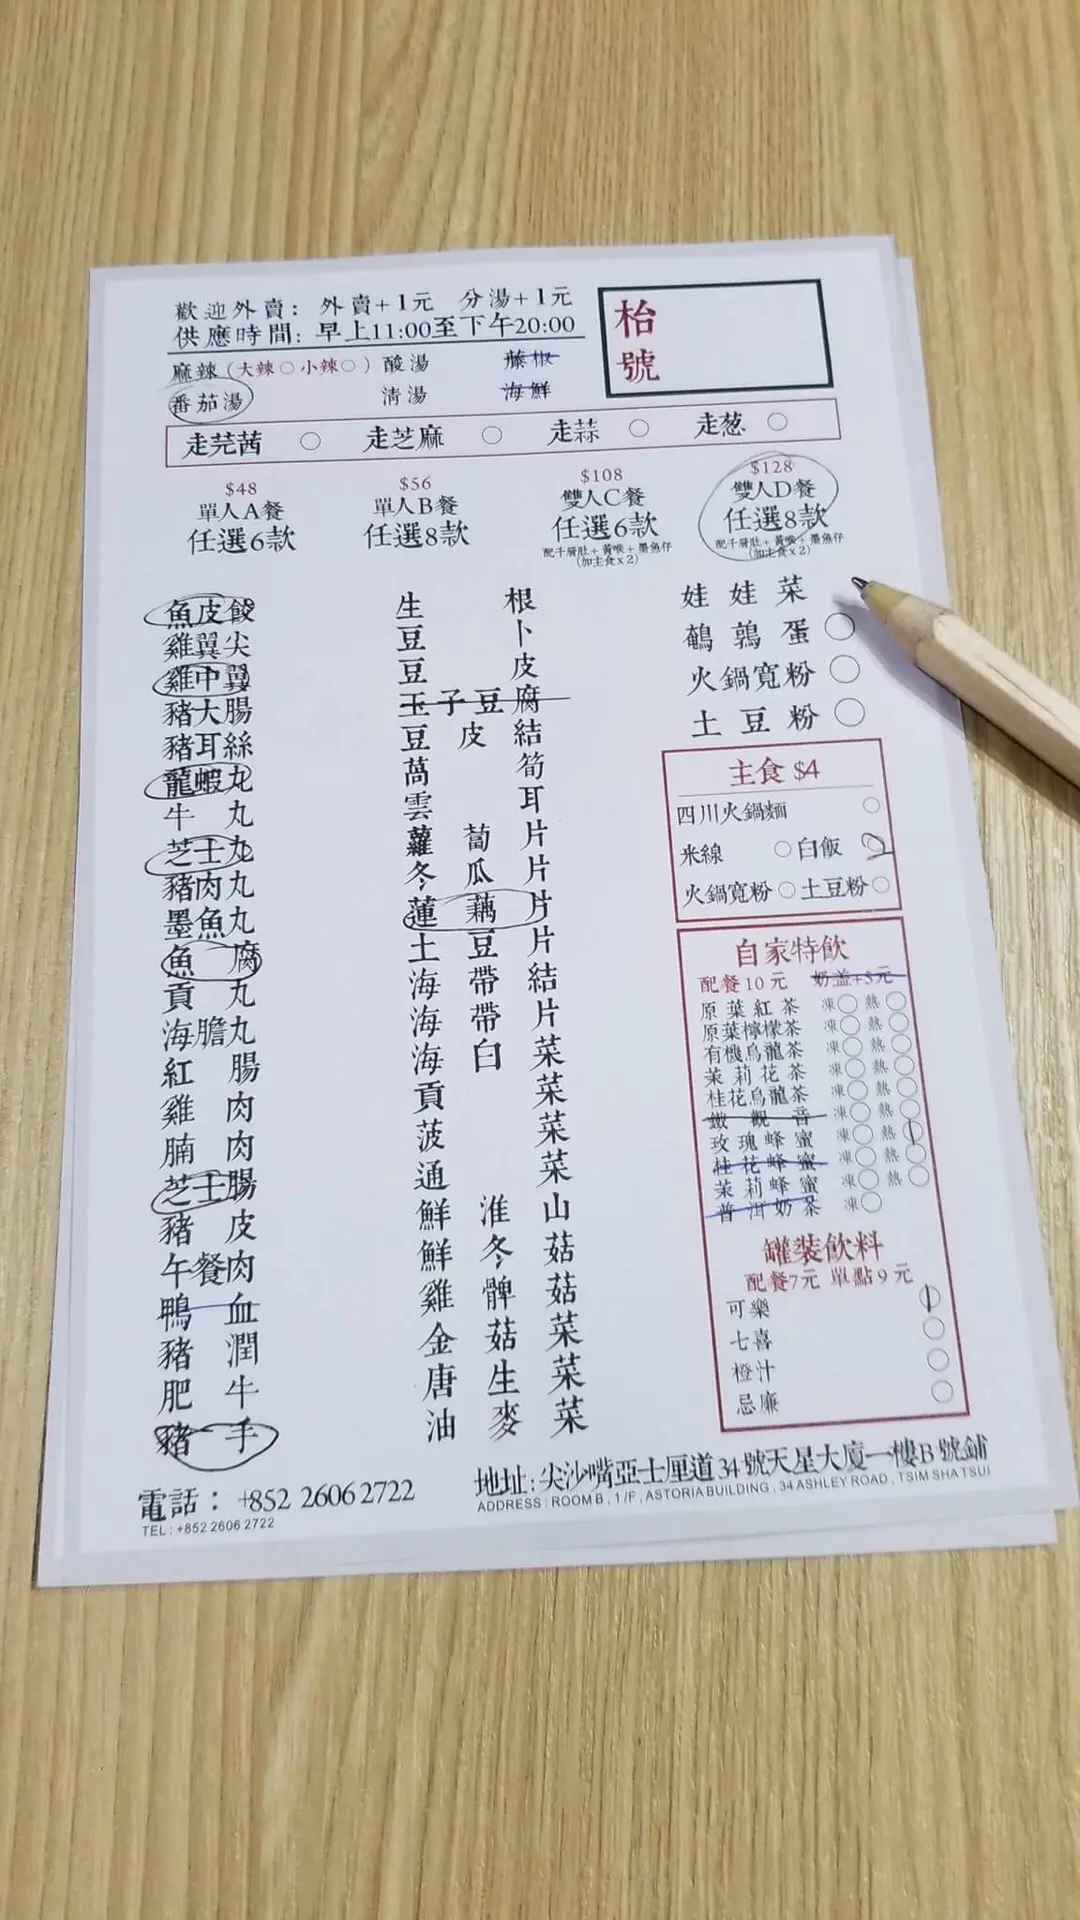 歡迎外賣：外賣+1元 分湯+1元
供應時間：早上11:00至下午20:00
枱號
麻辣（大辣○小辣○）酸湯 藤椒
番茄湯 清湯 海鮮
走芫茜 ○ 走芝麻 ○ 走蒜 ○ 走葱 ○
$48
單人A餐
任選6款
$56
單人B餐
任選8款
$108
雙人C餐
任選6款
配千層肚+黃喉+墨魚仔
（加主食x2）
$128
雙人D餐
任選8款
配千層肚+黃喉+墨魚仔
（加主食x2）
魚皮餃
雞翼尖
雞中翼
豬大腸
豬耳絲
龍蝦丸
牛丸
芝士丸
豬肉丸
墨魚丸
魚腐
貢丸
海膽丸
紅腸
雞肉
腩肉
芝士腸
豬皮
午餐肉
鴨血
豬潤
肥牛
豬手
生根
豆卜
豆皮
玉子豆腐
豆皮結
萵筍
雲耳
蘿蔔片
冬瓜片
蓮藕片
土豆片
海帶結
海帶片
海白菜
貢菜
菠菜
通菜
鮮淮山
鮮冬菇
雞髀菇
金菇菜
唐生菜
油麥菜
娃娃菜
鵪鶉蛋 ○
火鍋寬粉 ○
土豆粉 ○
主食 $4
四川火鍋麵 ○
米線 ○ 白飯 2
火鍋寬粉 ○ 土豆粉 ○
自家特飲
配餐10元 奶盖+5元
原葉紅茶 凍○ 熱○
原葉檸檬茶 凍○ 熱○
有機烏龍茶 凍○ 熱○
茉莉花茶 凍○ 熱○
桂花烏龍茶 凍○ 熱○
鐵觀音 凍○ 熱○
玫瑰蜂蜜 凍○ 熱○
桂花蜂蜜 凍○ 熱○
茉莉蜂蜜 凍○ 熱○
普洱奶茶 凍○
罐裝飲料
配餐7元 單點9元
可樂 ○
七喜 ○
橙汁 ○
忌廉 ○
電話：+852 2606 2722
TEL : +852 2606 2722
地址：尖沙嘴亞士厘道34號天星大廈一樓B號鋪
ADDRESS : ROOM B , 1 / F , ASTORIA BUILDING , 34 ASHLEY ROAD , TSIM SHA TSUI